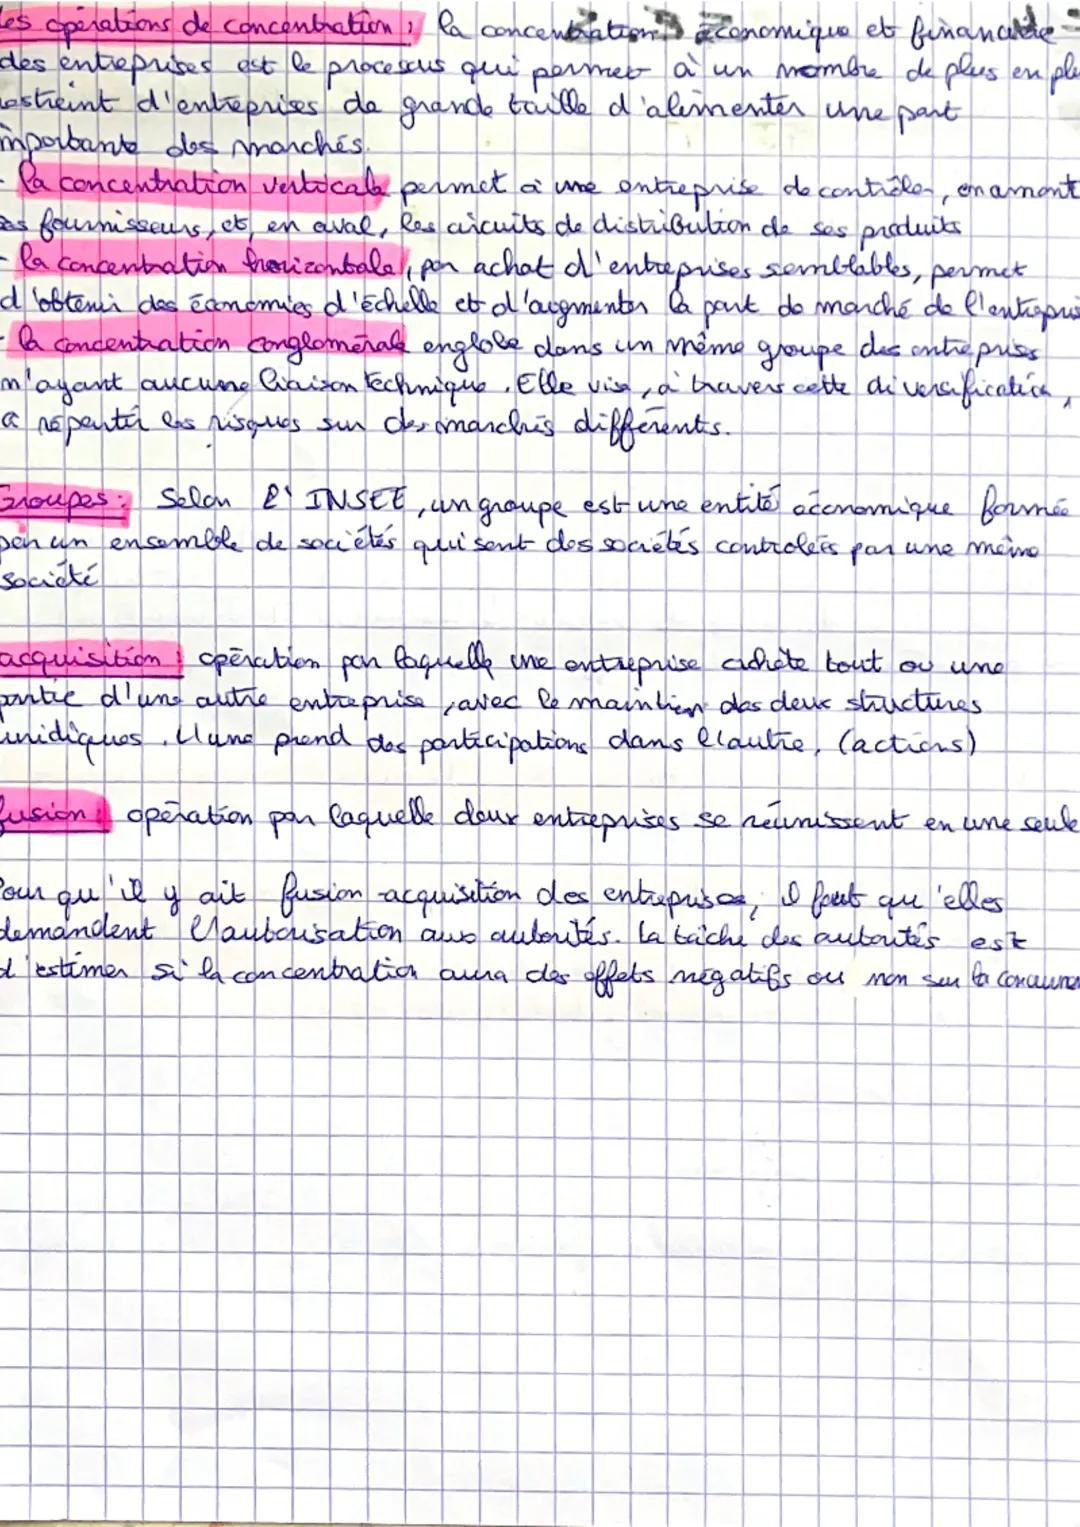 les opérations de concentration : la concentration économique et financière
des entreprises est le processus qui permet à un nombre de plus en plus
restreint d'entreprises de grande taille d'alimenter une part
importante des marchés.
- la concentration verticale permet à une entreprise de contrôler, en amont
ses fournisseurs, et, en aval, les circuits de distribution de ses produits
- la concentration horizontale, par achat d'entreprises semblables, permet
d'obtenir des économies d'échelle et d'augmenter la part de marché de l'entreprise
- la concentration conglomérale englobe dans un même groupe des entreprises
n'ayant aucune liaison technique. Elle vise, à travers cette diversification,
à répartir les risques sur des marchés différents.
Groupes : Selon l'INSEE, un groupe est une entité économique formée
par un ensemble de sociétés qui sont des sociétés controlées par une même
société
acquisition : opération par laquelle une entreprise achète tout ou une
partie d'une autre entreprise, avec le maintien des deux structures
juridiques. L'une prend des participations dans l'autre, (actions)
fusion : opération par laquelle deux entreprises se réunissent en une seule
Pour qu'il y ait fusion-acquisition des entreprises, il faut qu'elles
demandent l'autorisation aux autorités. La tâche des autorités est
d'estimer si la concentration aura des effets négatifs ou non sur la concurrence